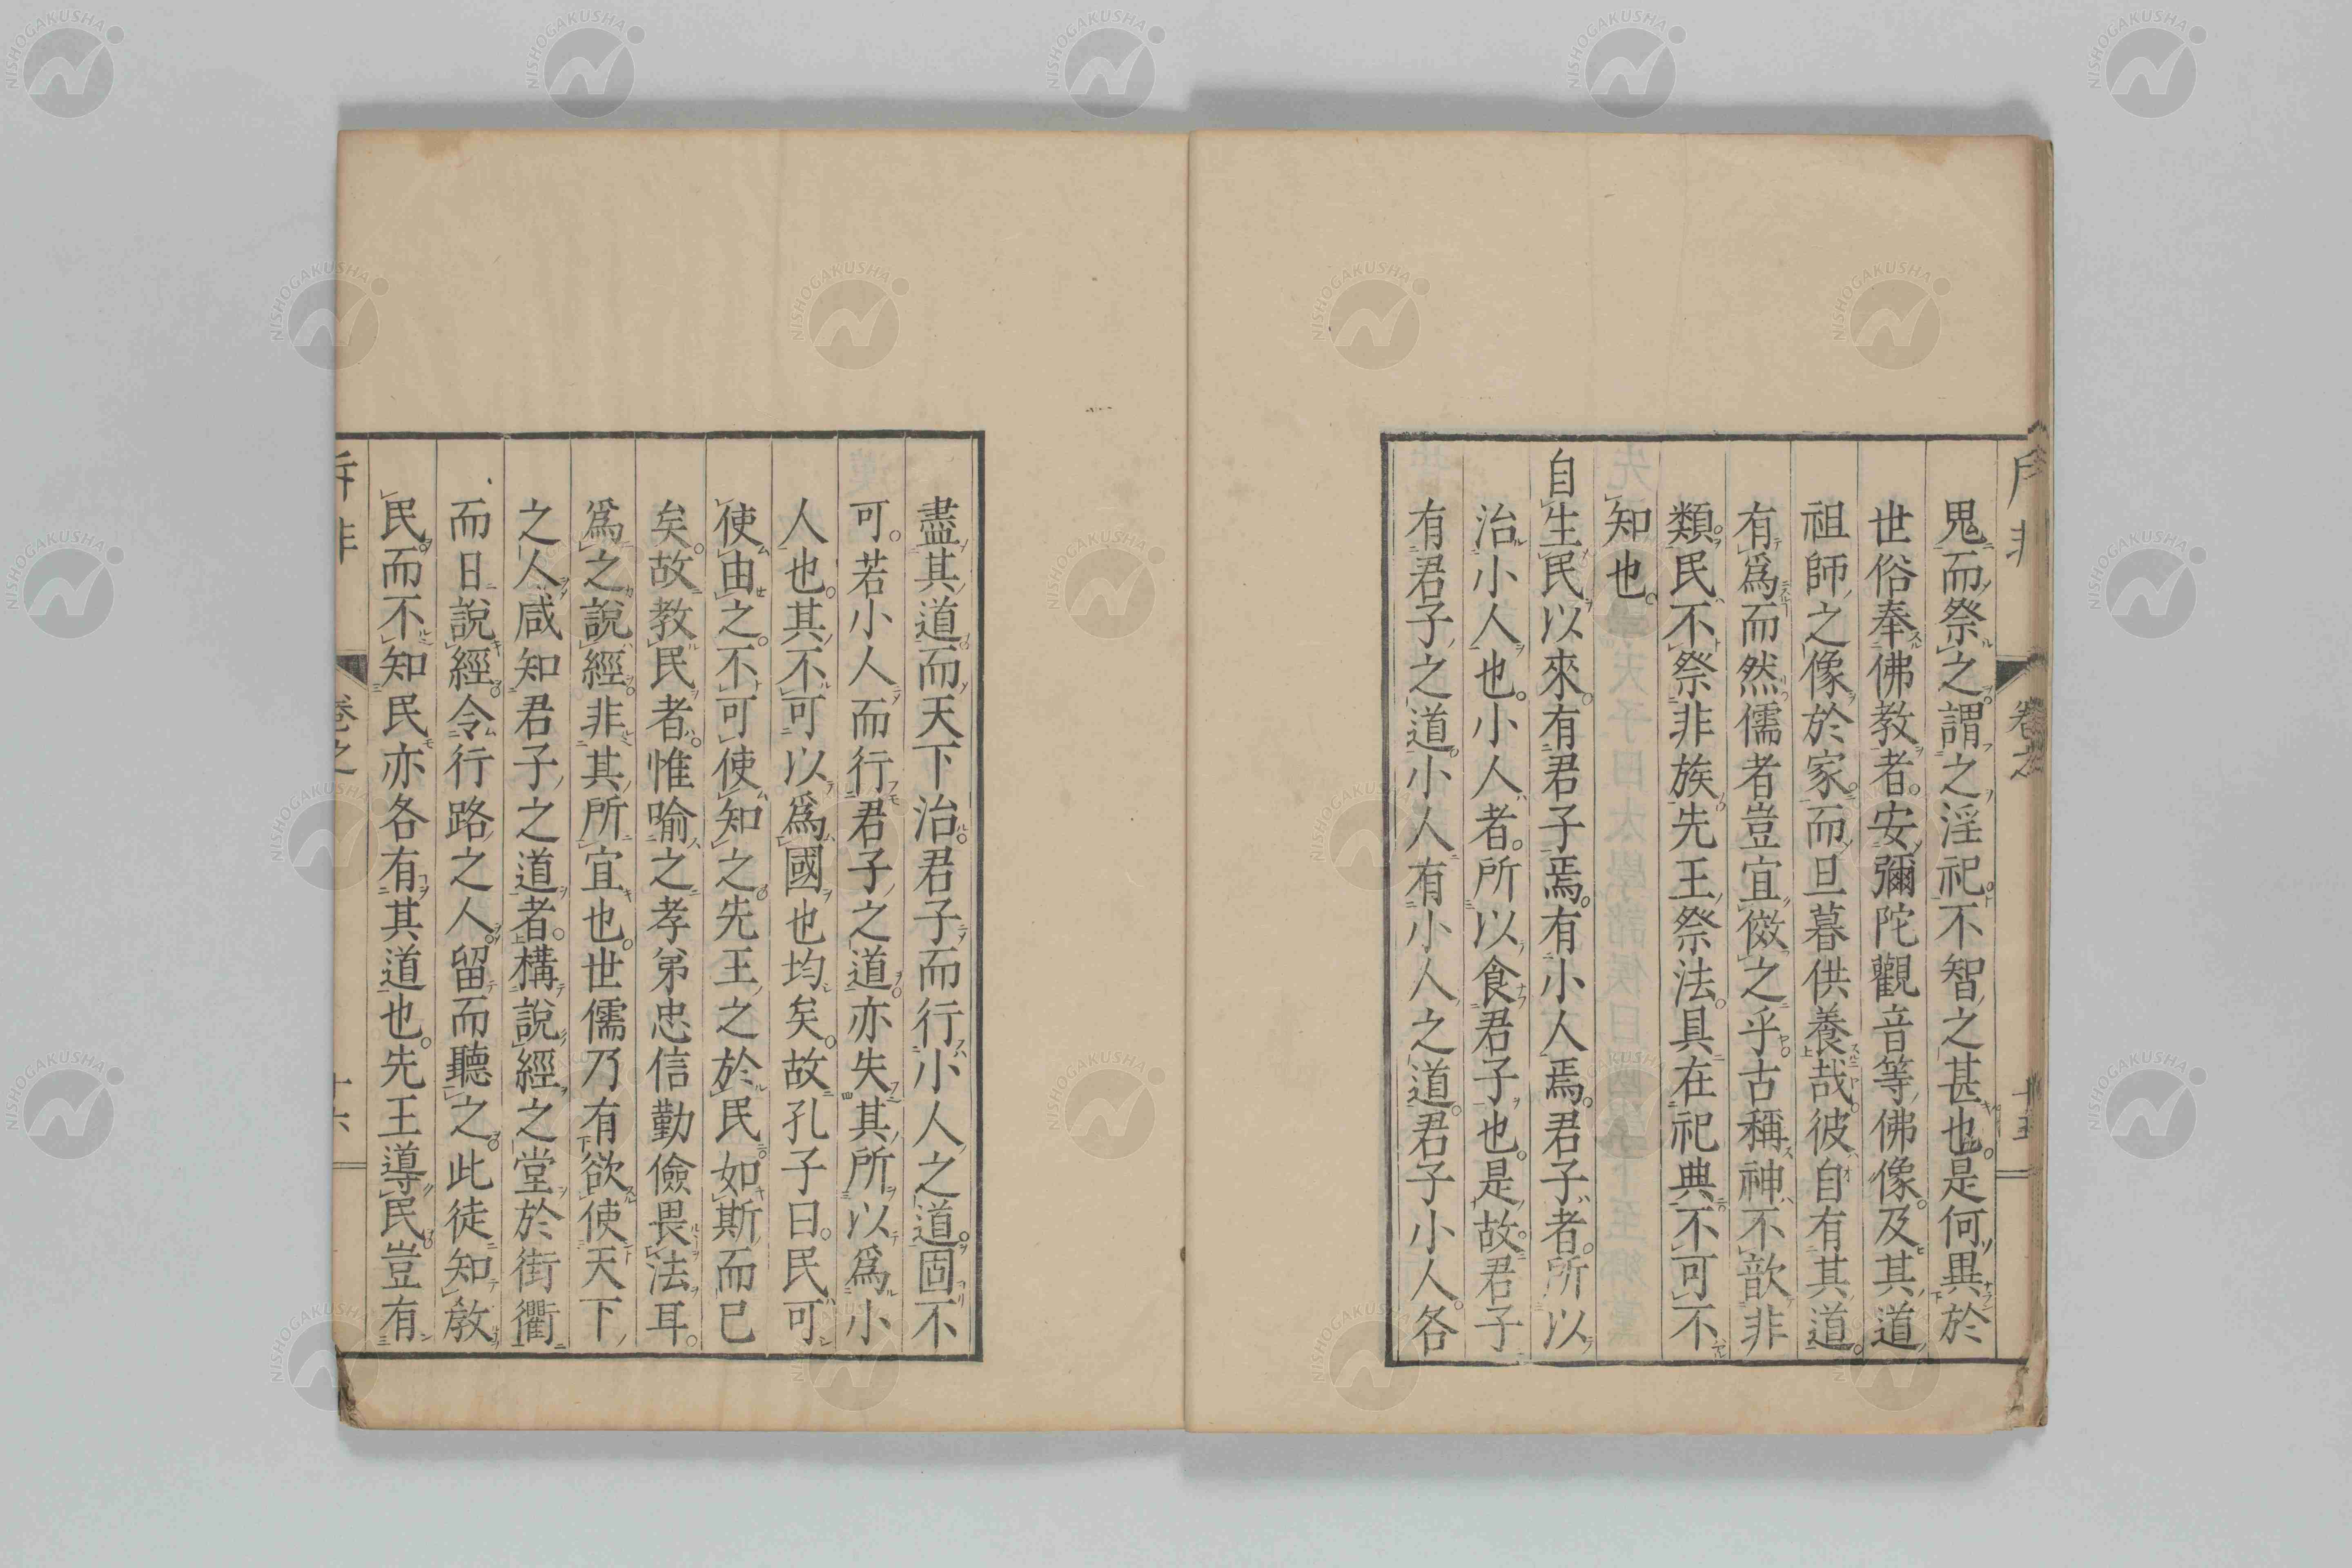 鬼而祭之。謂之淫祀。不智之甚也。是何異於
世俗奉佛教者。安彌陀觀音等佛像。及其道
祖師之像於家。而旦暮供養哉。彼自有其道。
有爲而然。儒者豈宜傚之乎。古稱神不歆非
類。民不祭非族。先王祭法。具在祀典。不可不
知也。
自生民以來。有君子焉。有小人焉。君子者。所以
治小人也。小人者。所以食君子也。是故。君子
有君子之道。小人有小人之道。君子小人。各
盡其道。而天下治。君子而行小人之道。固不
可。若小人而行君子之道。亦失其所以爲小
人也。其不可以爲國也均矣。故孔子曰。民可
使由之。不可使知之。先王之於民。如斯而已
矣。故教民者。惟喻之孝弟忠信勤儉畏法耳。
爲之說經。非其所宜也。世儒乃有欲使天下
之人。咸知君子之道者。構說經之堂於街衢
而日說經。令行路之人。留而聽之。此徒知教
民。而不知民亦各有其道也。先王導民。豈有
卷之
十五
NISHOGAKUSHA